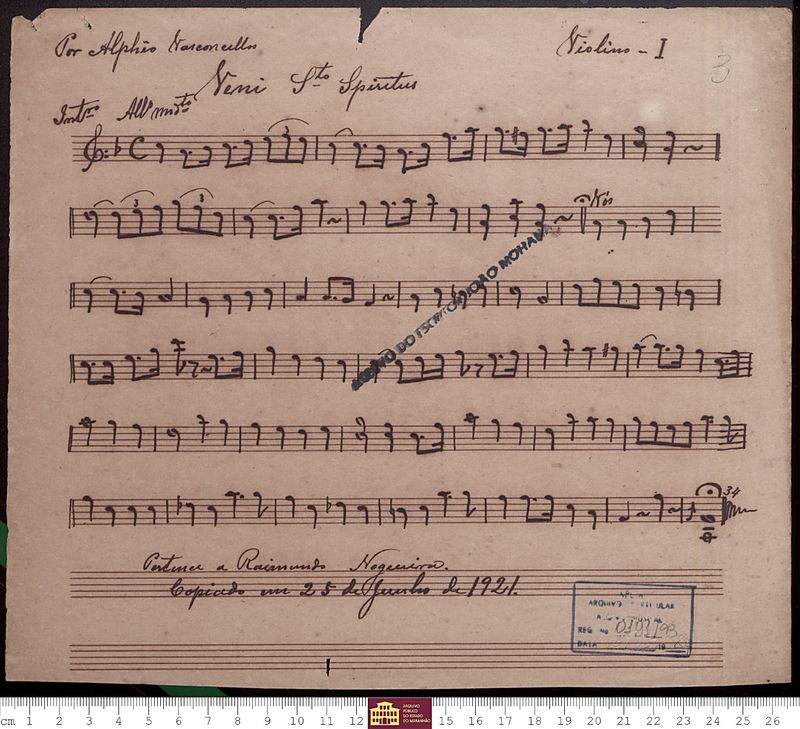 Por Alphêo Vasconcellos
Violino - I
3
Veni Sto Spiritus
Intro Allo modto
3
3
3
Nós
ARQUIVO DO ESCRITOR JOÃO MOHANA
34
Pertence a Raimundo Nogueira.
Copiado em 25 de Junho de 1921.
APEM
ARQUIVO
REG No 0191/95
DATA
cm 1 2 3 4 5 6 7 8 9 10 11 12 15 16 17 18 19 20 21 22 23 24 25 26
ARQUIVO
PÚBLICO
DO ESTADO
DO MARANHÃO